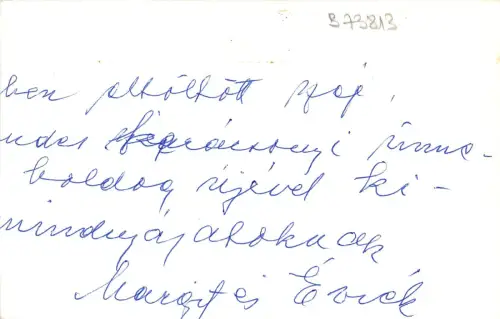 B73813
ben eltöltött szép,
ndes karácsonyi ünne-
boldog újévet kí-
mindnyájatoknak
Margit és Évick